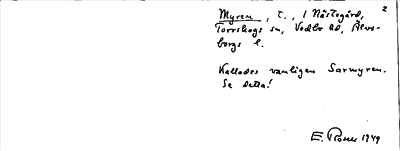 2
Myren, t., / Nästegård,
Torrskogs sn, Vedbo hd, Älvs-
borgs l.
Kallades vanligen Sarmyren.
Se detta!
E. Rosell 1949